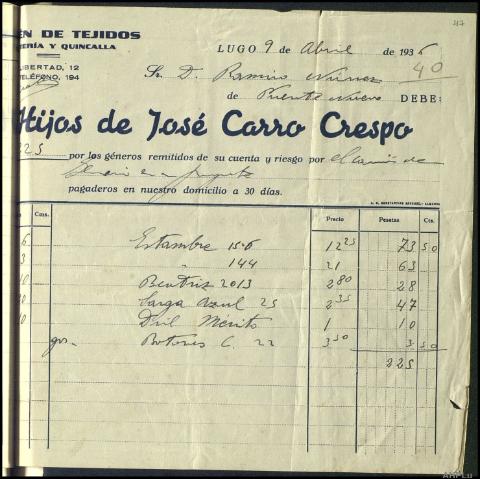 47
ÉN DE TEJIDOS
ERÍA Y QUINCALLA
LIBERTAD, 12
TELÉFONO, 194
LUGO 9 de Abril de 1936
40
Sr. D. Ramiro
de Puente Nuevo DEBE:
Hijos de José Carro Crespo
225 por los géneros remitidos de su cuenta y riesgo por el de
pagaderos en nuestro domicilio a 30 días.
Cms. Precio Pesetas Cts.
6 Estambre 156 12 25 73 50
3 " 144 21 63
10 Beatriz 2013 2 80 28
Sarga Azul 25 2 35 47
10 Dril Mérito 1 10
grs. Botones C. 22 3 50 3 50
225
AHPLu